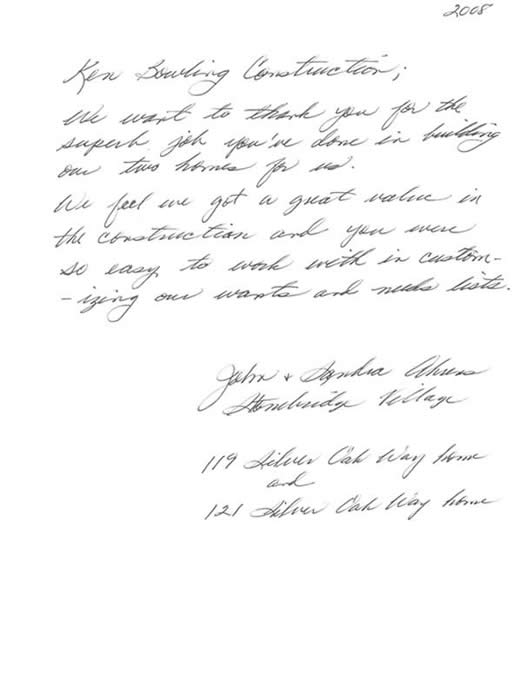 2008
Ken Bowling Construction;
We want to thank you for the
superb job you've done in building
our two homes for us.
We feel we got a great value in
the construction and you were
so easy to work with in custom-
-izing our wants and needs lists.
John + Sandra Ahrens
Stonebridge Village
119 Silver Oak Way home
and
121 Silver Oak Way home